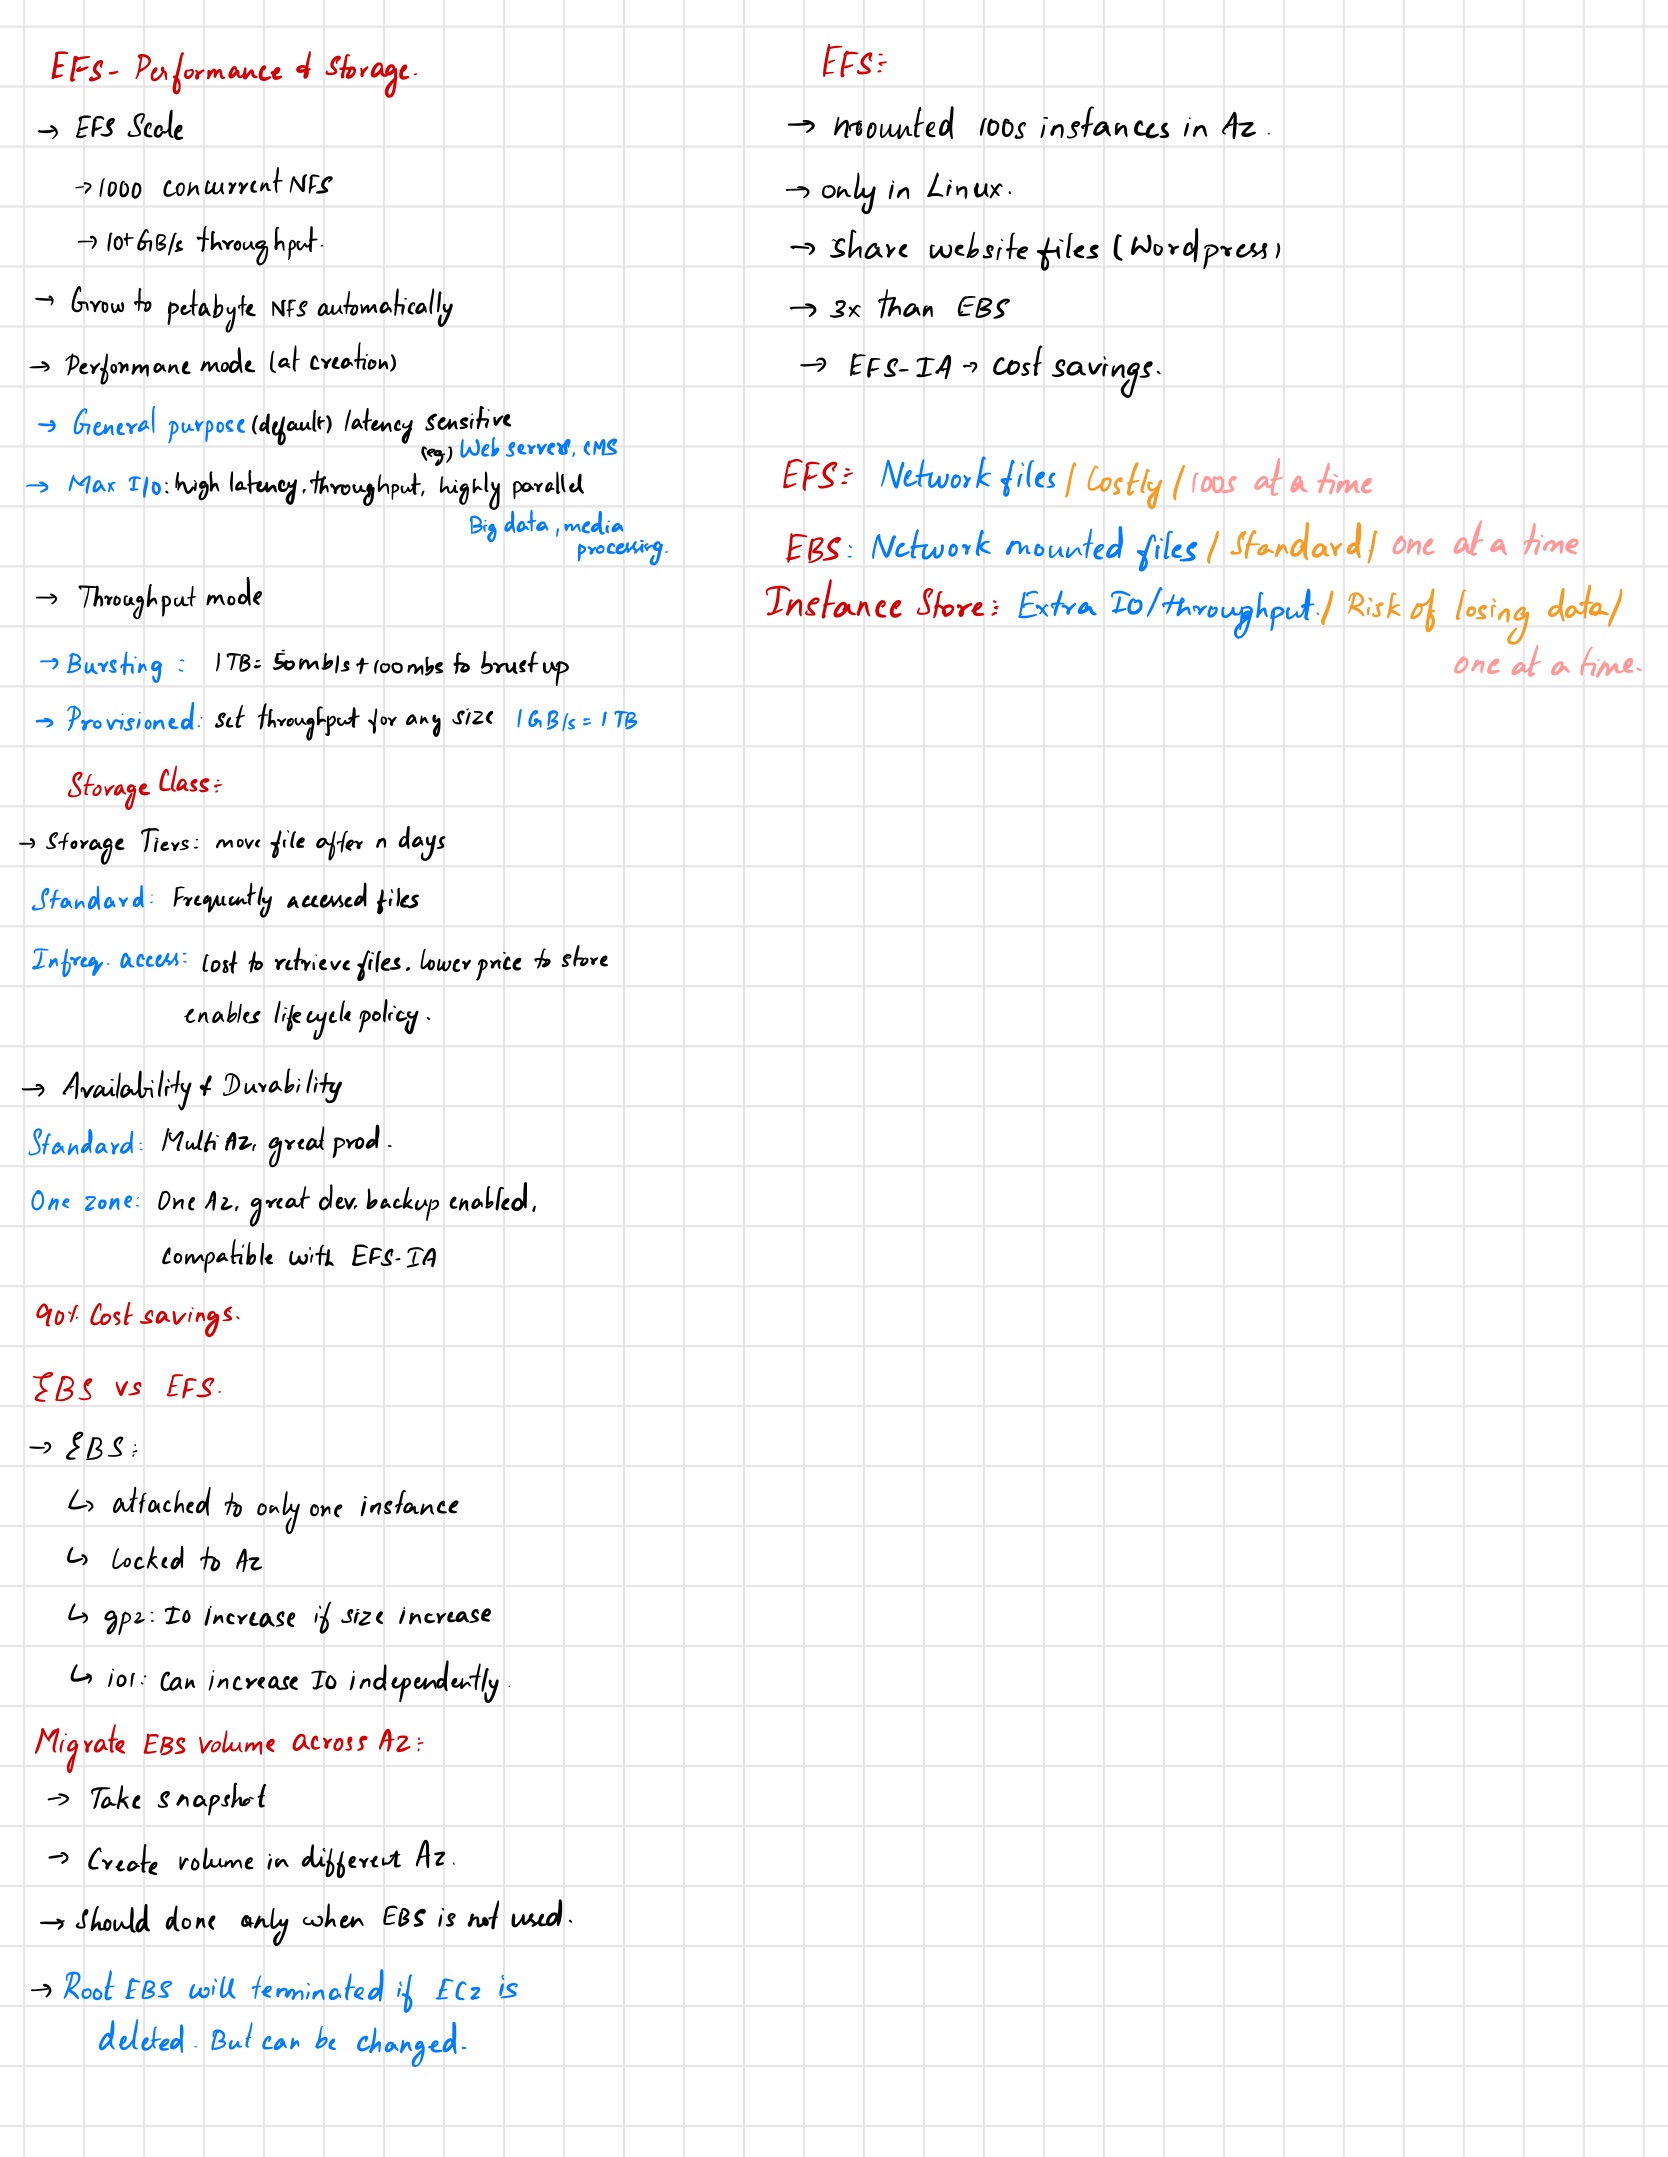 EFS - Performance & Storage.
→ EFS Scale
→ 1000 concurrent NFS
→ 10+ GB/s throughput.
→ Grow to petabyte NFS automatically
→ Performane mode (at creation)
→ General purpose (default) latency sensitive
(eg) Web servers, CMS
→ Max I/O: high latency, throughput, highly parallel
Big data, media
processing.
→ Throughput mode
→ Bursting : 1TB = 50mb/s + 100mbs to brust up
→ Provisioned: set throughput for any size 1GB/s = 1TB
Storage Class:-
→ Storage Tiers: move file after n days
Standard: Frequently accessed files
Infreq. access: cost to retrieve files. lower price to store
enables lifecycle policy.
→ Availability & Durability
Standard: Multi AZ, great prod.
One zone: One AZ, great dev. backup enabled,
compatible with EFS-IA
90% Cost savings.
EBS vs EFS.
→ EBS:-
↳ attached to only one instance
↳ Locked to AZ
↳ gp2: IO Increase if size increase
↳ io1: Can increase IO independently.
Migrate EBS volume across AZ:-
→ Take snapshot
→ Create volume in different AZ.
→ Should done only when EBS is not used.
→ Root EBS will terminated if EC2 is
deleted. But can be changed.
EFS:-
→ mounted 100s instances in AZ.
→ only in Linux.
→ Share website files (Wordpress)
→ 3x than EBS
→ EFS-IA → cost savings.
EFS:- Network files / Costly / 100s at a time
EBS: Network mounted files / Standard / one at a time
Instance Store:- Extra IO/throughput. / Risk of losing data /
one at a time.